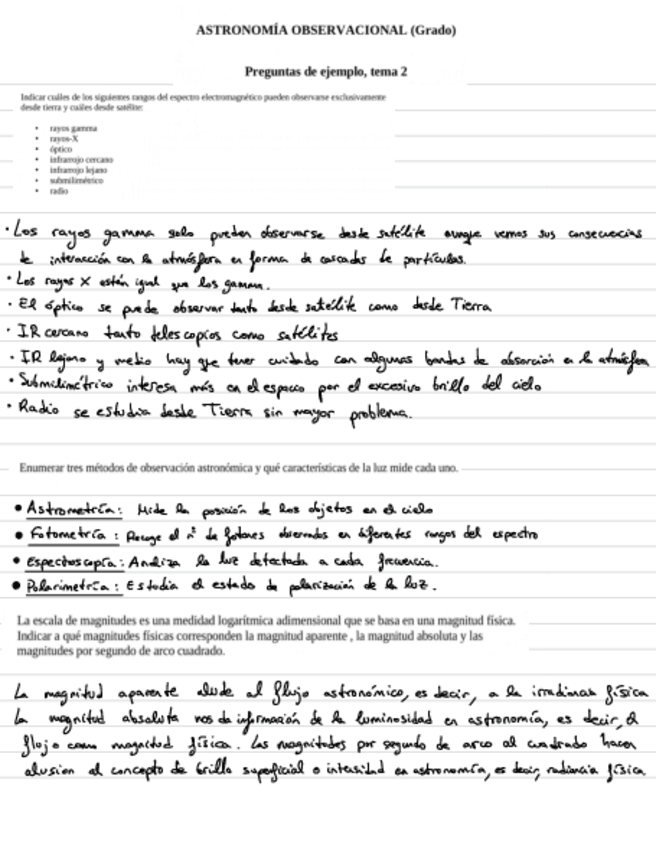 ASTRONOMÍA OBSERVACIONAL (Grado)
Preguntas de ejemplo, tema 2
Indicar cuáles de los siguientes rangos del espectro electromagnético pueden observarse exclusivamente
desde tierra y cuáles desde satélite:
• rayos gamma
• rayos-X
• óptico
• infrarrojo cercano
• infrarrojo lejano
• submilimétrico
• radio
· Los rayos gamma solo pueden observarse desde satélite aunque vemos sus consecuencias
de interacción con la atmósfera en forma de cascadas de partículas.
· Los rayos X están igual que los gamma.
· El óptico se puede observar tanto desde satélite como desde Tierra
· IR cercano tanto telescopios como satélites
· IR lejano y medio hay que tener cuidado con algunas bandas de absorción en la atmósfera
· Submilimétrico interesa más en el espacio por el excesivo brillo del cielo
· Radio se estudia desde Tierra sin mayor problema.
Enumerar tres métodos de observación astronómica y qué características de la luz mide cada uno.
• Astrometría: Mide la posición de los objetos en el cielo
• Fotometría: Recoge el nº de fotones observados en diferentes rangos del espectro
• Espectroscopía: Analiza la luz detectada a cada frecuencia.
• Polarimetría: Estudia el estado de polarización de la luz.
La escala de magnitudes es una medidad logarítmica adimensional que se basa en una magnitud física.
Indicar a qué magnitudes físicas corresponden la magnitud aparente , la magnitud absoluta y las
magnitudes por segundo de arco cuadrado.
La magnitud aparente alude al flujo astronómico, es decir, a la irradiancia física
La magnitud absoluta nos da información de la luminosidad en astronomía, es decir, el
flujo como magnitud física. Las magnitudes por segundo de arco al cuadrado hacen
alusion al concepto de brillo superficial o intensidad en astronomía, es decir, radiancia física.